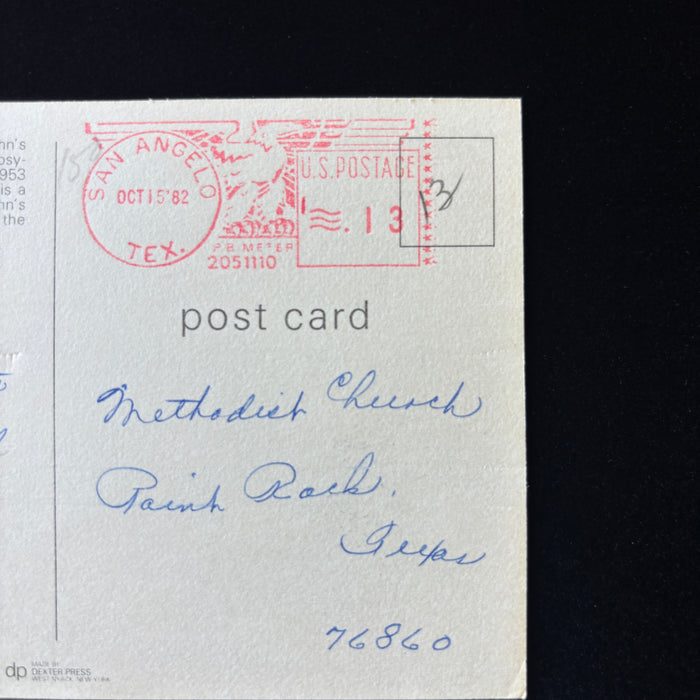 hn's
osy-
953
is a
hn's
the
150
SAN ANGELO
OCT 15 '82
TEX.
P.B. METER
2051110
U.S. POSTAGE
.13
13
post card
Methodist Church
Paint Rock,
Texas
76860
dp
MADE BY
DEXTER PRESS
WEST NYACK, NEW YORK